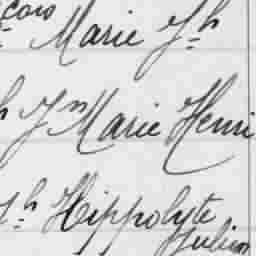 Marie Jh
Jn Marie Henri
Jh Hippolyte
Julien